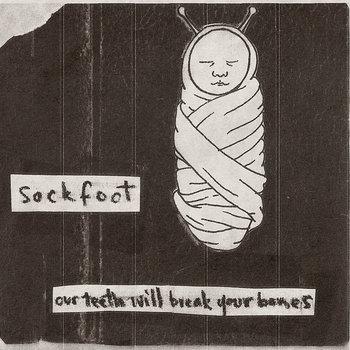 sockfoot
our teeth will break your bones